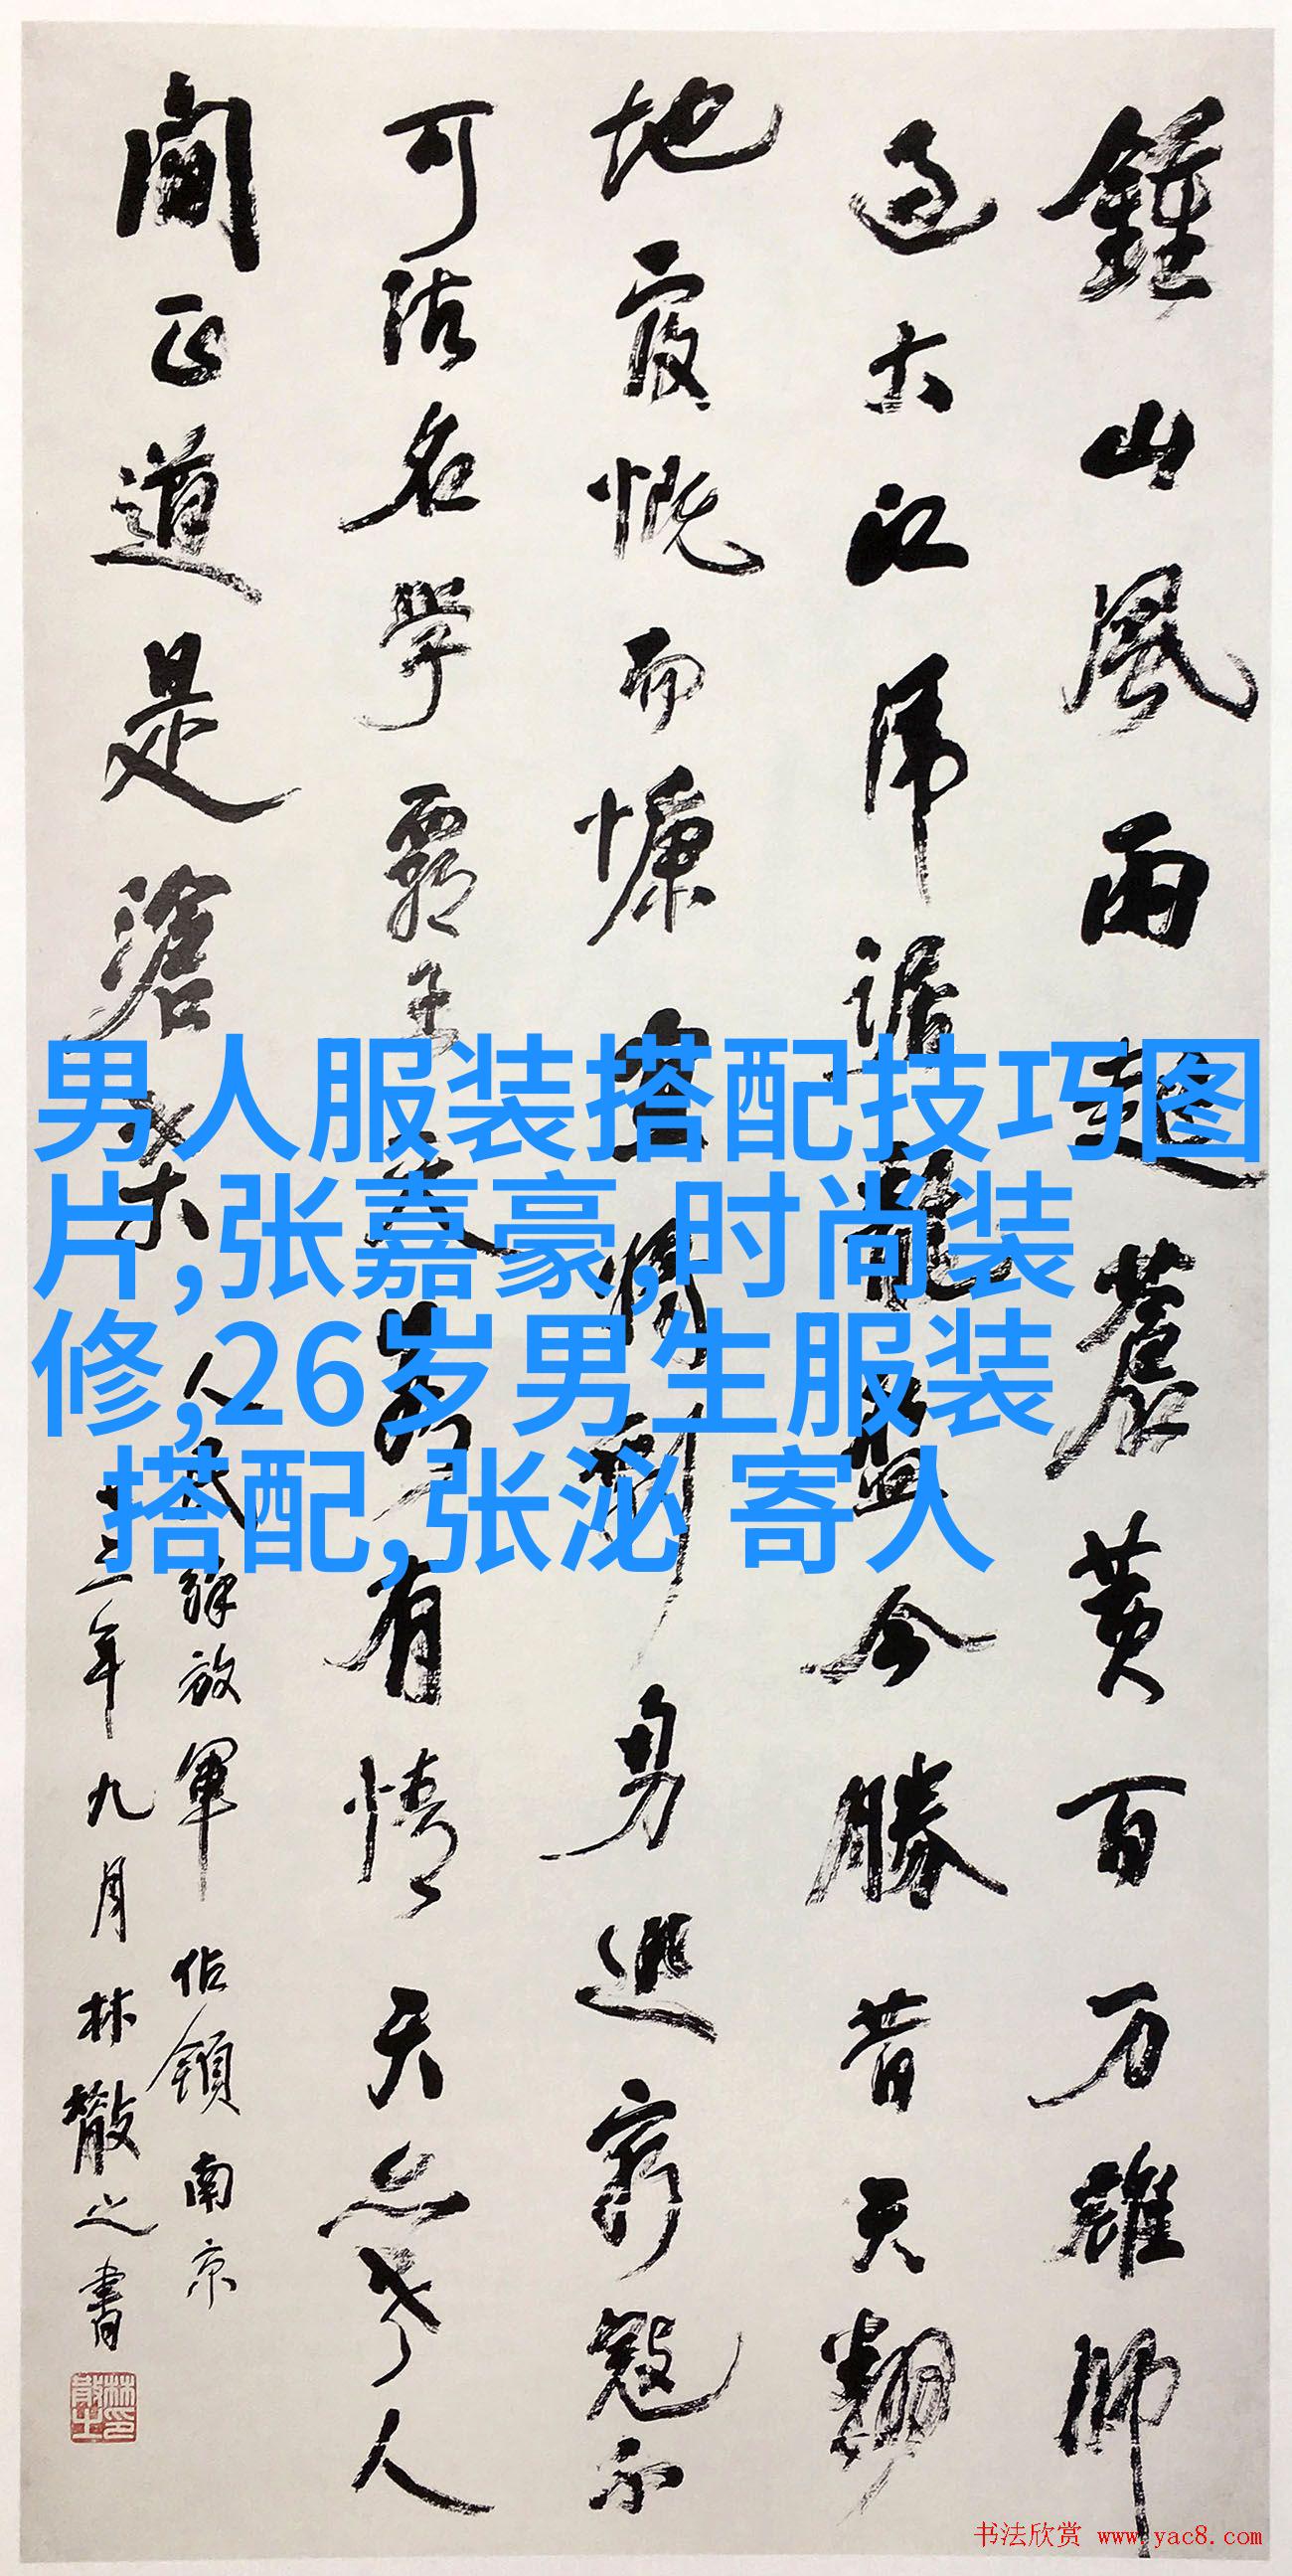 鍾山風雨起蒼黄百万雄師
过大江虎踞龍盤今勝昔天翻
地覆慨而慷宜将剩勇追窮寇不
可沽名學霸王天若有情天亦老人
間正道是滄桑
人民解放軍佔領南京
三年九月林散之書
男人服装搭配技巧图
片,张嘉豪,时尚装
修,26岁男生服装
搭配,张泌 寄人
书法欣赏 www.yac8.com